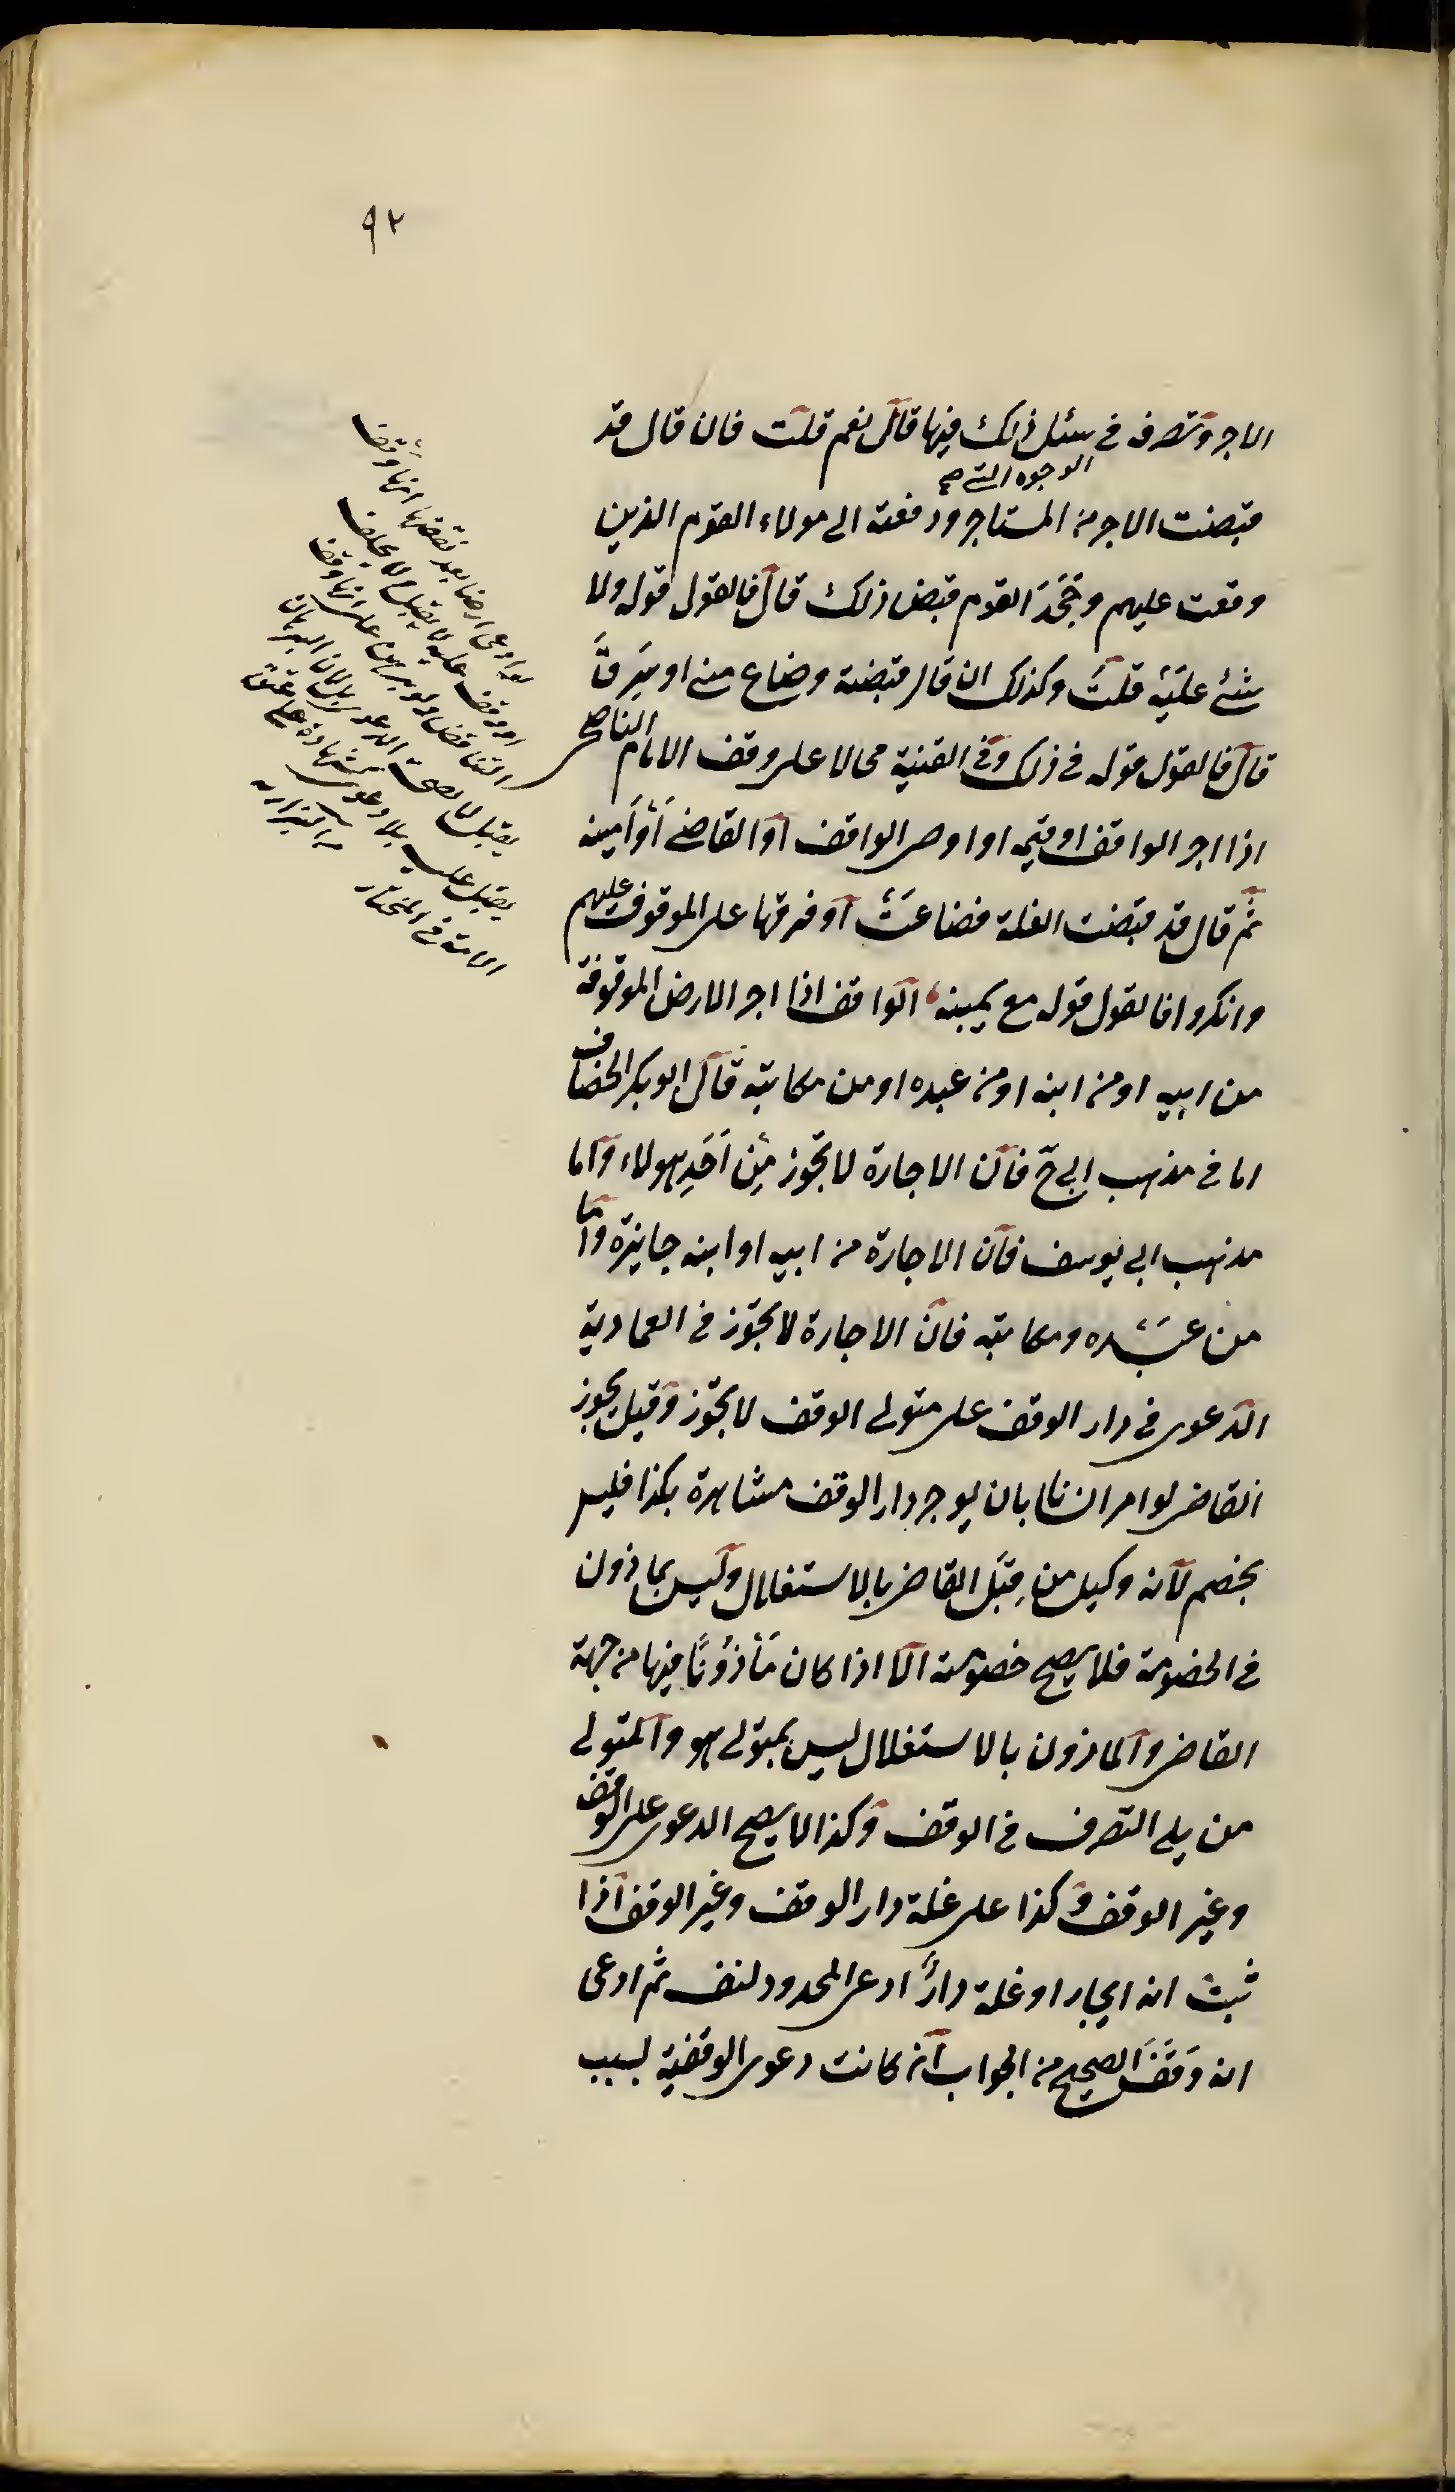 ٩٢
الاجر وتصرف في سئل ذلك فيها قال نعم قلت فان قال قد
الوجوه التي صح
قبضت الاجر من المستاجر ودفعته الى هولاء القوم الذين
وقعت عليهم وجَحَدَ القوم قبض ذلك قال فالقول قوله ولا
شئ عليه قلت وكذلك ان قال قبضته وضاع مني او سرق
قال فالقول قوله في ذلك وفي القنية محالا على وقف الامام الناصحي
اذا اجر الواقف او قيمه او اوصى الواقف او القاضي أوْ أمينه
ثم قال قد قبضت الغلة فضاعَتْ او فرقها على الموقوف عليهم
وانكروا فالقول قوله مع يمينه الواقف اذا اجر الارض الموقوفة
من ابيه او من ابنه او من عبده او من مكاتبه قال ابو بكر الخصاف
اما في مذهب ابي ح فان الاجارة لا تجوز مِنْ اَحَدِ هولاء واما
مذهب ابي يوسف فان الاجارة من ابيه او ابنه جايزة واما
من عبده ومكاتبه فان الاجارة لا تجوز في العمادية
الدعوى في دار الوقف على متولى الوقف لا تجوز وقيل يجوز
القاضى لو امر انسانا بان يوجر دار الوقف مشاهرة بكذا فليس
بخصم لانه وكيل من قِبَل القاضى بالاستغلال وليس بماذون
في الخصومة فلا يصح خصومته الا اذا كان مَأذُونًا فيها من جهة
القاضى والماذون بالاستغلال ليس بمتولى هو والمتولى
من يلى التصرف في الوقف وكذا لا يصح الدعوى على الوقف
وغير الوقف وكذا على غلة دار الوقف وغير الوقف اذا
ثبت انه ايجار او غلة دارًا ادعى المحدود لنفسه ثم ادعى
انه وَقَفَ الصحيح من الجواب ان كانت دعوى الوقفية لسبب
لو ادعى ارضا بعد نقضها انها وقف
او وقف عليه لا يقبل ولا يحلف
التناقض ولو برهن على انها وقف
يقبل لا لصحة الدعوى بل لان البرهان
يقبل عليه بلا دعوى كشهادة على عتق
الامة في المختار
من البزازيه